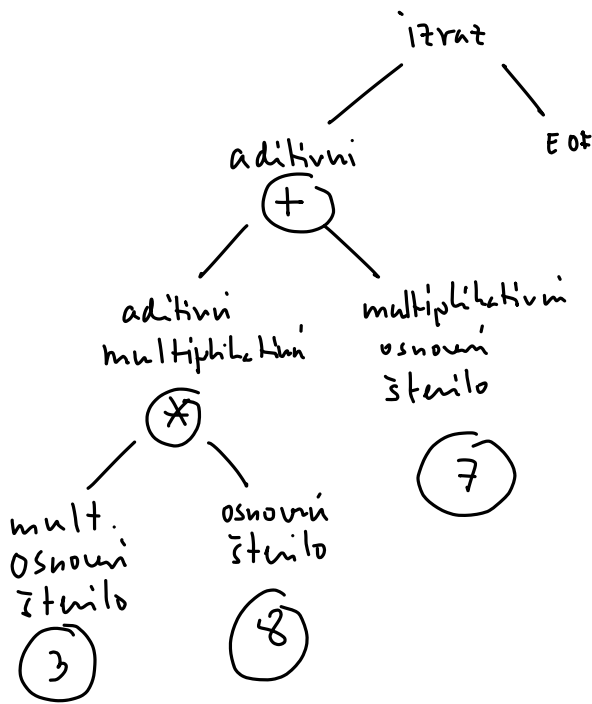 izraz
aditivni
EOF
+
aditivni
multiplikativni
multiplikativni
osnovni
število
*
7
mult.
osnovni
število
osnovni
število
3
8